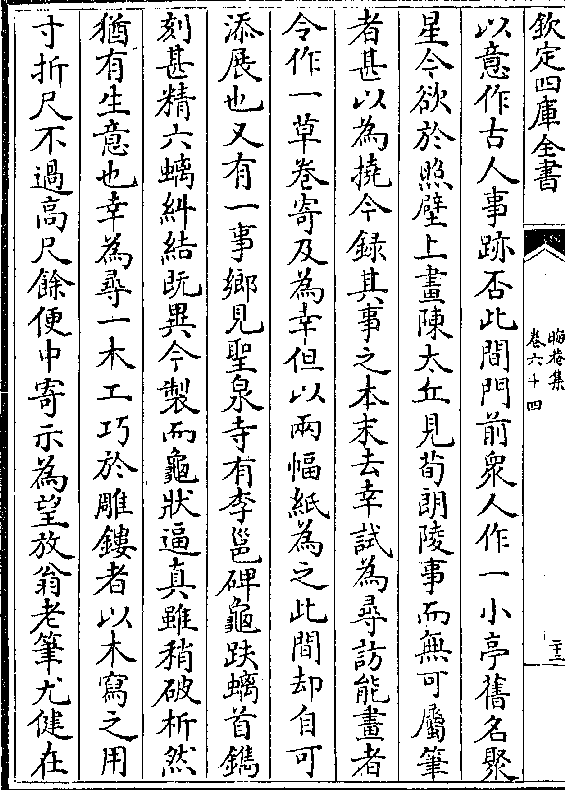 欽定四庫全書
晦菴集
卷六十四
二十三
以意作古人事跡否此間門前衆人作一小亭舊名聚
星今欲於照壁上畫陳太丘見荀朗陵事而無可屬筆
者甚以為撓今録其事之本末去幸試為尋訪能畫者
令作一草卷寄及為幸但以兩幅紙為之此間却自可
添展也又有一事鄉見聖泉寺有李邕碑龜趺螭首鐫
刻甚精六螭糾結既異今製而龜狀逼真雖稍破析然
猶有生意也幸為尋一木工巧於雕鏤者以木寫之用
寸折尺不過高尺餘便中寄示為望放翁老筆尤健在